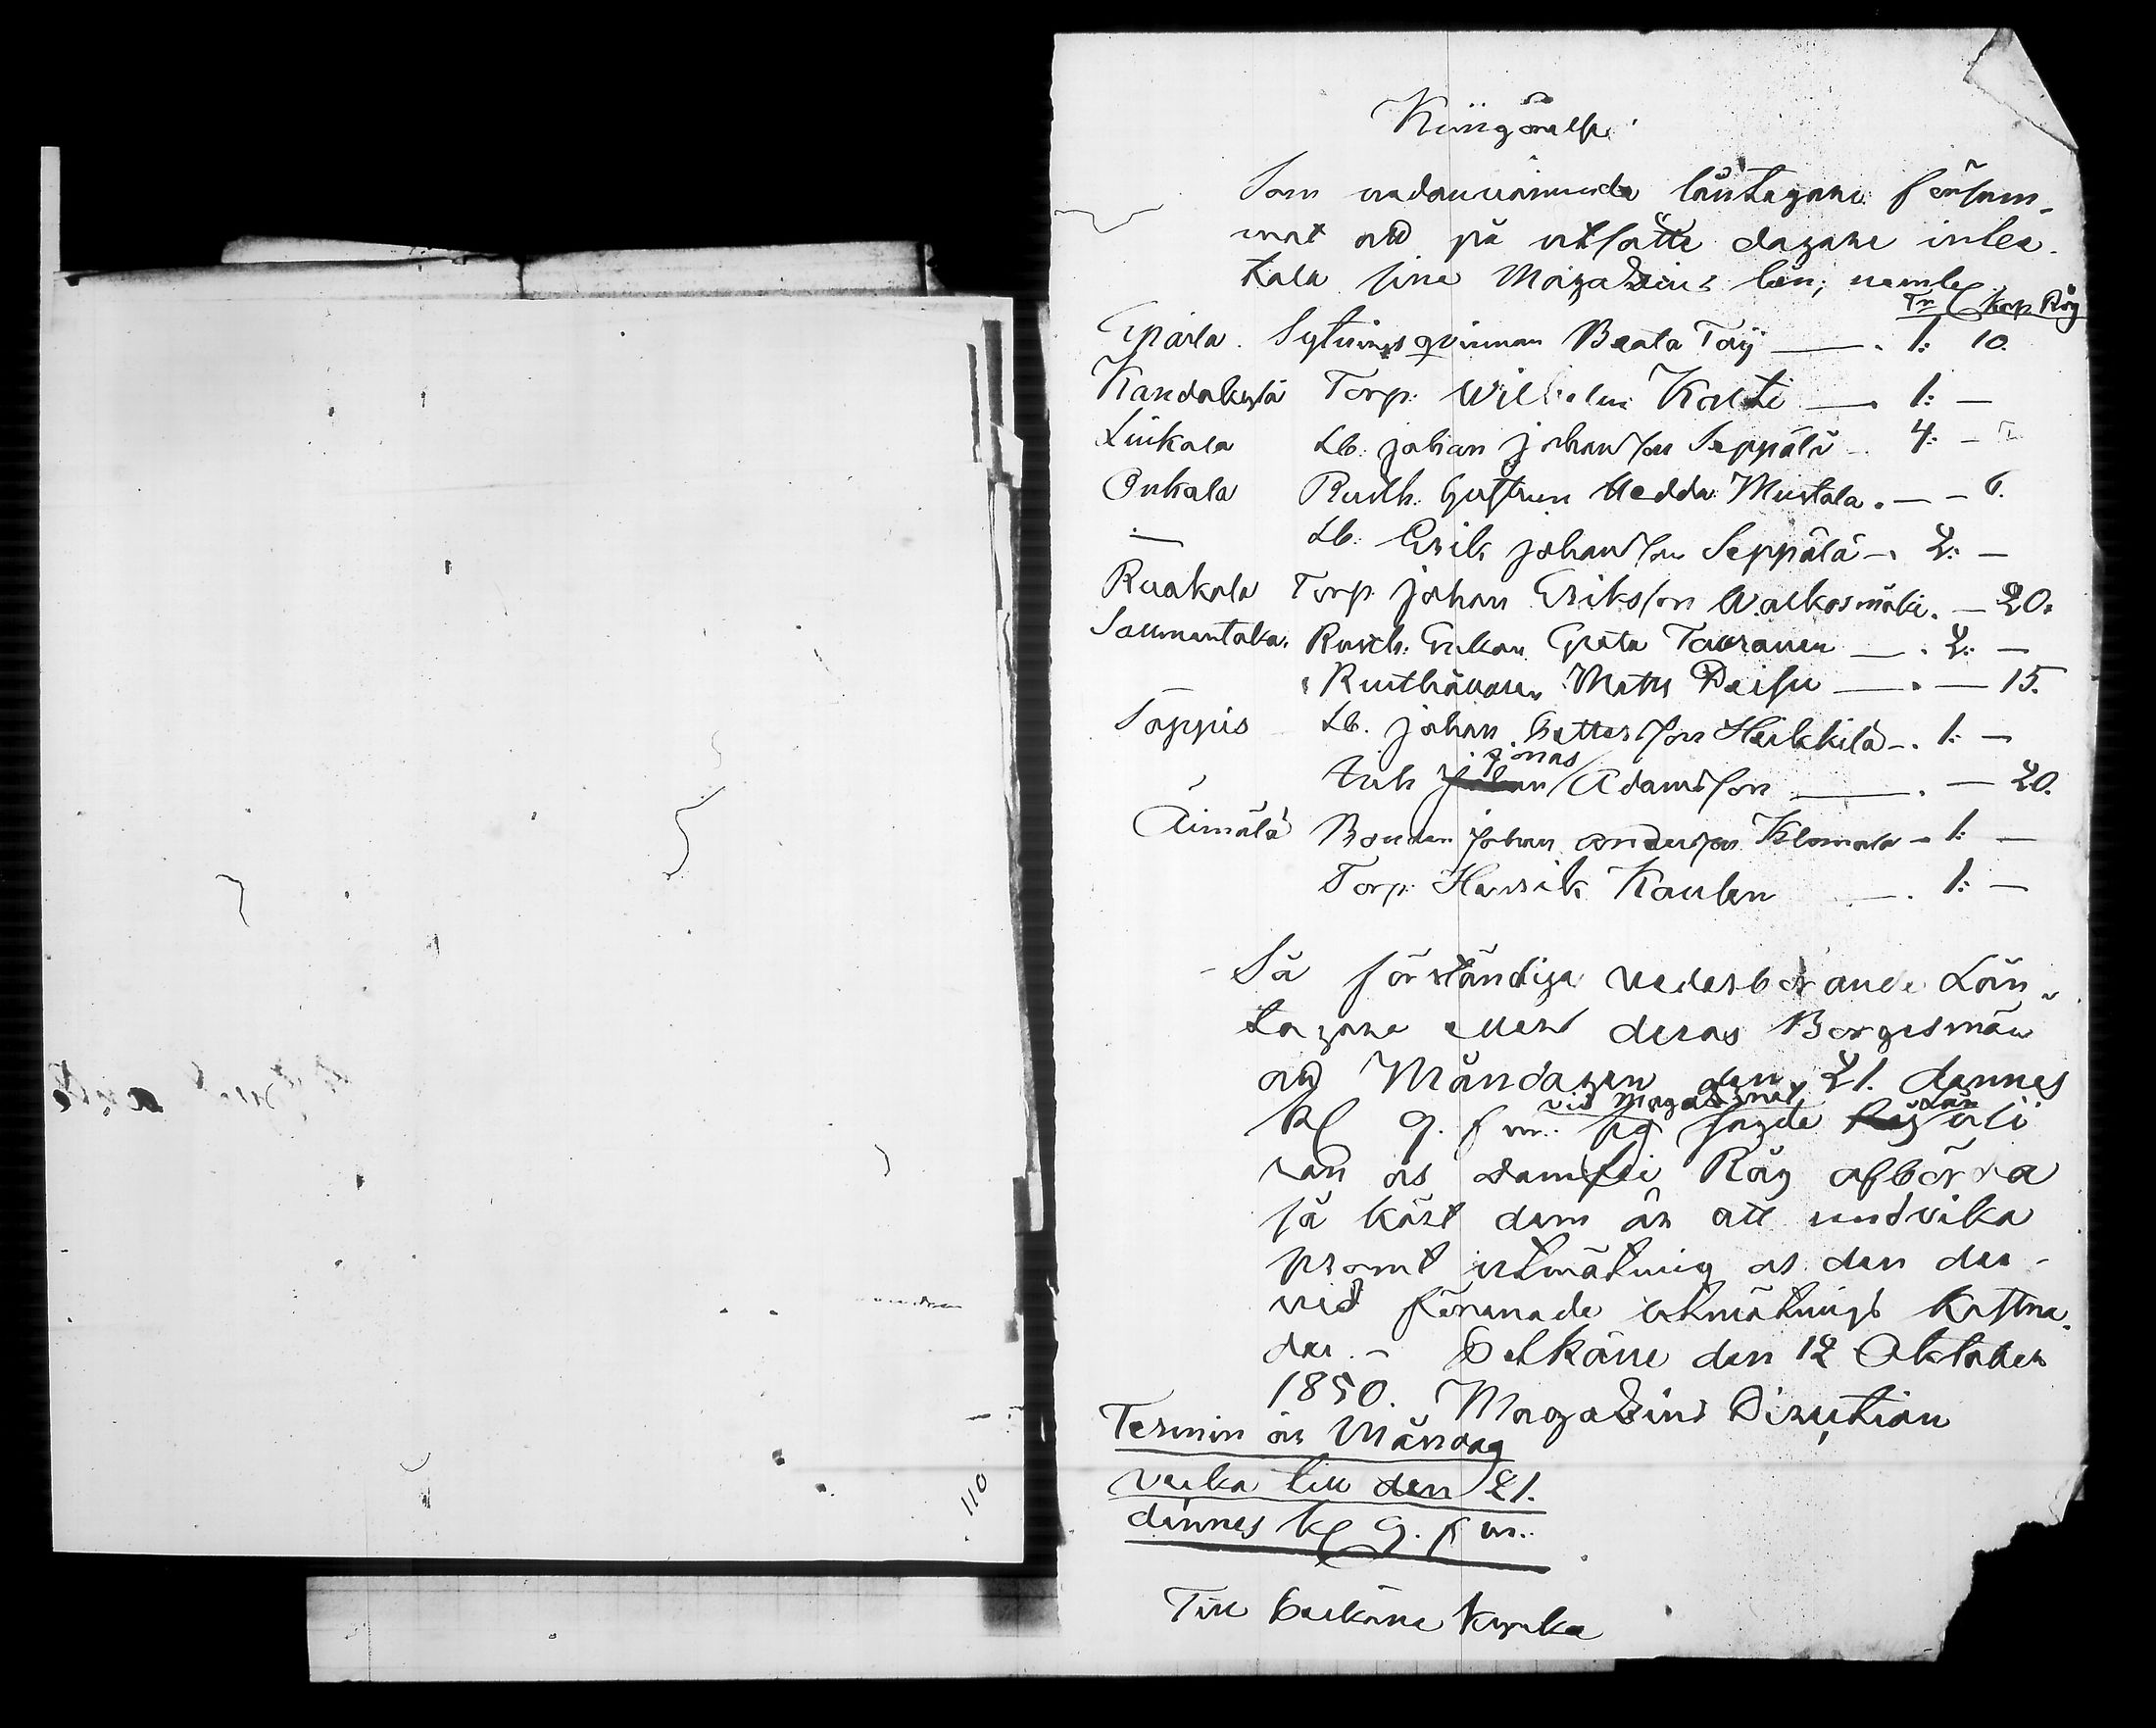 Kungörelse
Som nedannämnde låntagare försum-
mat att på utsatte dagare inbe-
tala sine Magazins lån; nemle
Tr Kap Råg
Epaala. Sytningsqvinnan Beata Töÿ — . 1: 10.
Kandokylä Torp: Wilhelm Kalti — 1: —
Liukala Lb: Johan Johansson Seppälä — 4: —
Onkala Rusth. Gustava Hedda Mustala . — — 6.
— Lb: Erik Johansson Seppälä — . 2: —
Ruokola Torp Johan Eriksson Walkosmäki . — 20.
Salmentaka. Rusth: Enkan Greta Tauranen — . 2: —
Rusthållaren Mats Paisu — . — 15.
Sappis Lb. Johan Pettersson Heikkilä — . 1: —
Inh Johan Adamsson — . — 20.
Jonas
Äimälä Bonden Johan Andersson Klomola — 1: —
Torp: Henrik Kaulen — . 1: —
Så förständiga vederbörande Lån-
tagare eller deras Borgesmän
att Måndagen den 21. dennes
Kl 9. f m: på sagde Råg äli
vid Magazinet Lån
van as Råg afbörda
så kärt dem är att undvika
promt utmätning as den der-
vid förenade utmätnings kostna-
der. — Pelkäne den 12 Oktober
1850. Magazins Direction
Termin är Måndag
veika till den 21.
dennes Kl 9. f m:
Till Pelkäne Kyrka
110